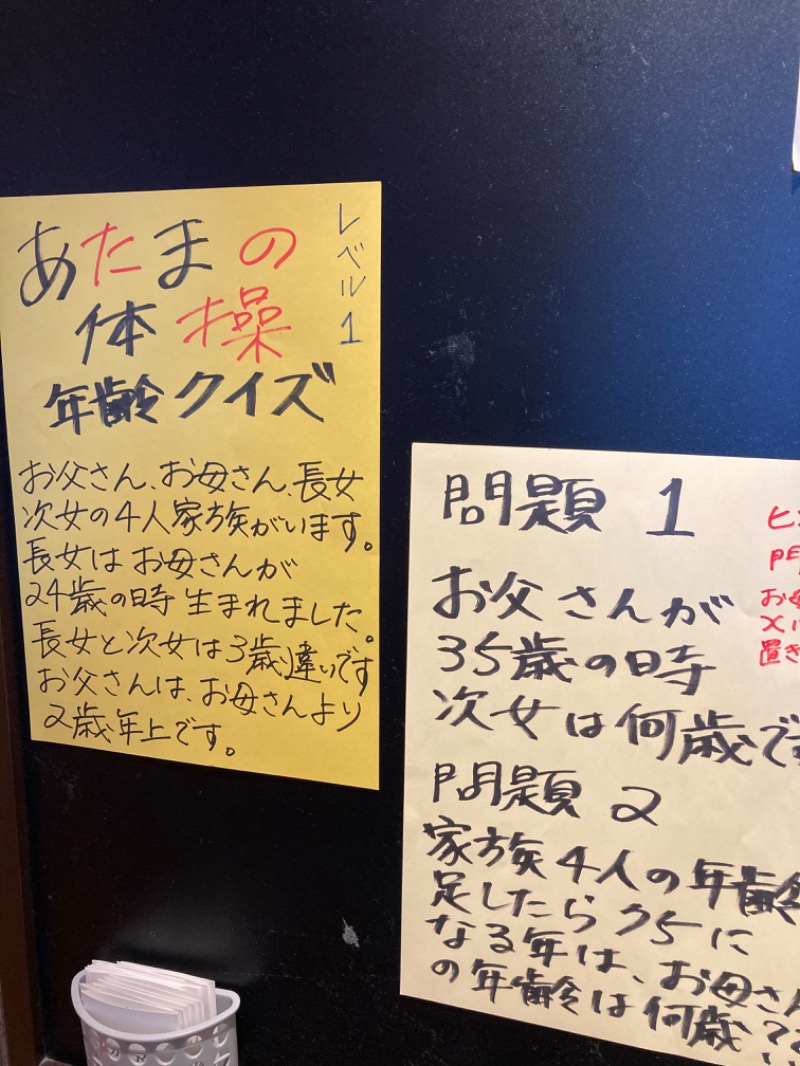 あたまの
体操
レベル1
年齢クイズ
お父さん、お母さん、長女
次女の4人家族がいます。
長女はお母さんが
24歳の時生まれました。
長女と次女は3歳違いです
お父さんは、お母さんより
2歳年上です。
問題 1
お父さんが
35歳の時
次女は何歳です
問題 2
家族4人の年齢
足したら75に
なる年は、お母さん
の年齢は何歳??
ヒ
問
お
X
置き